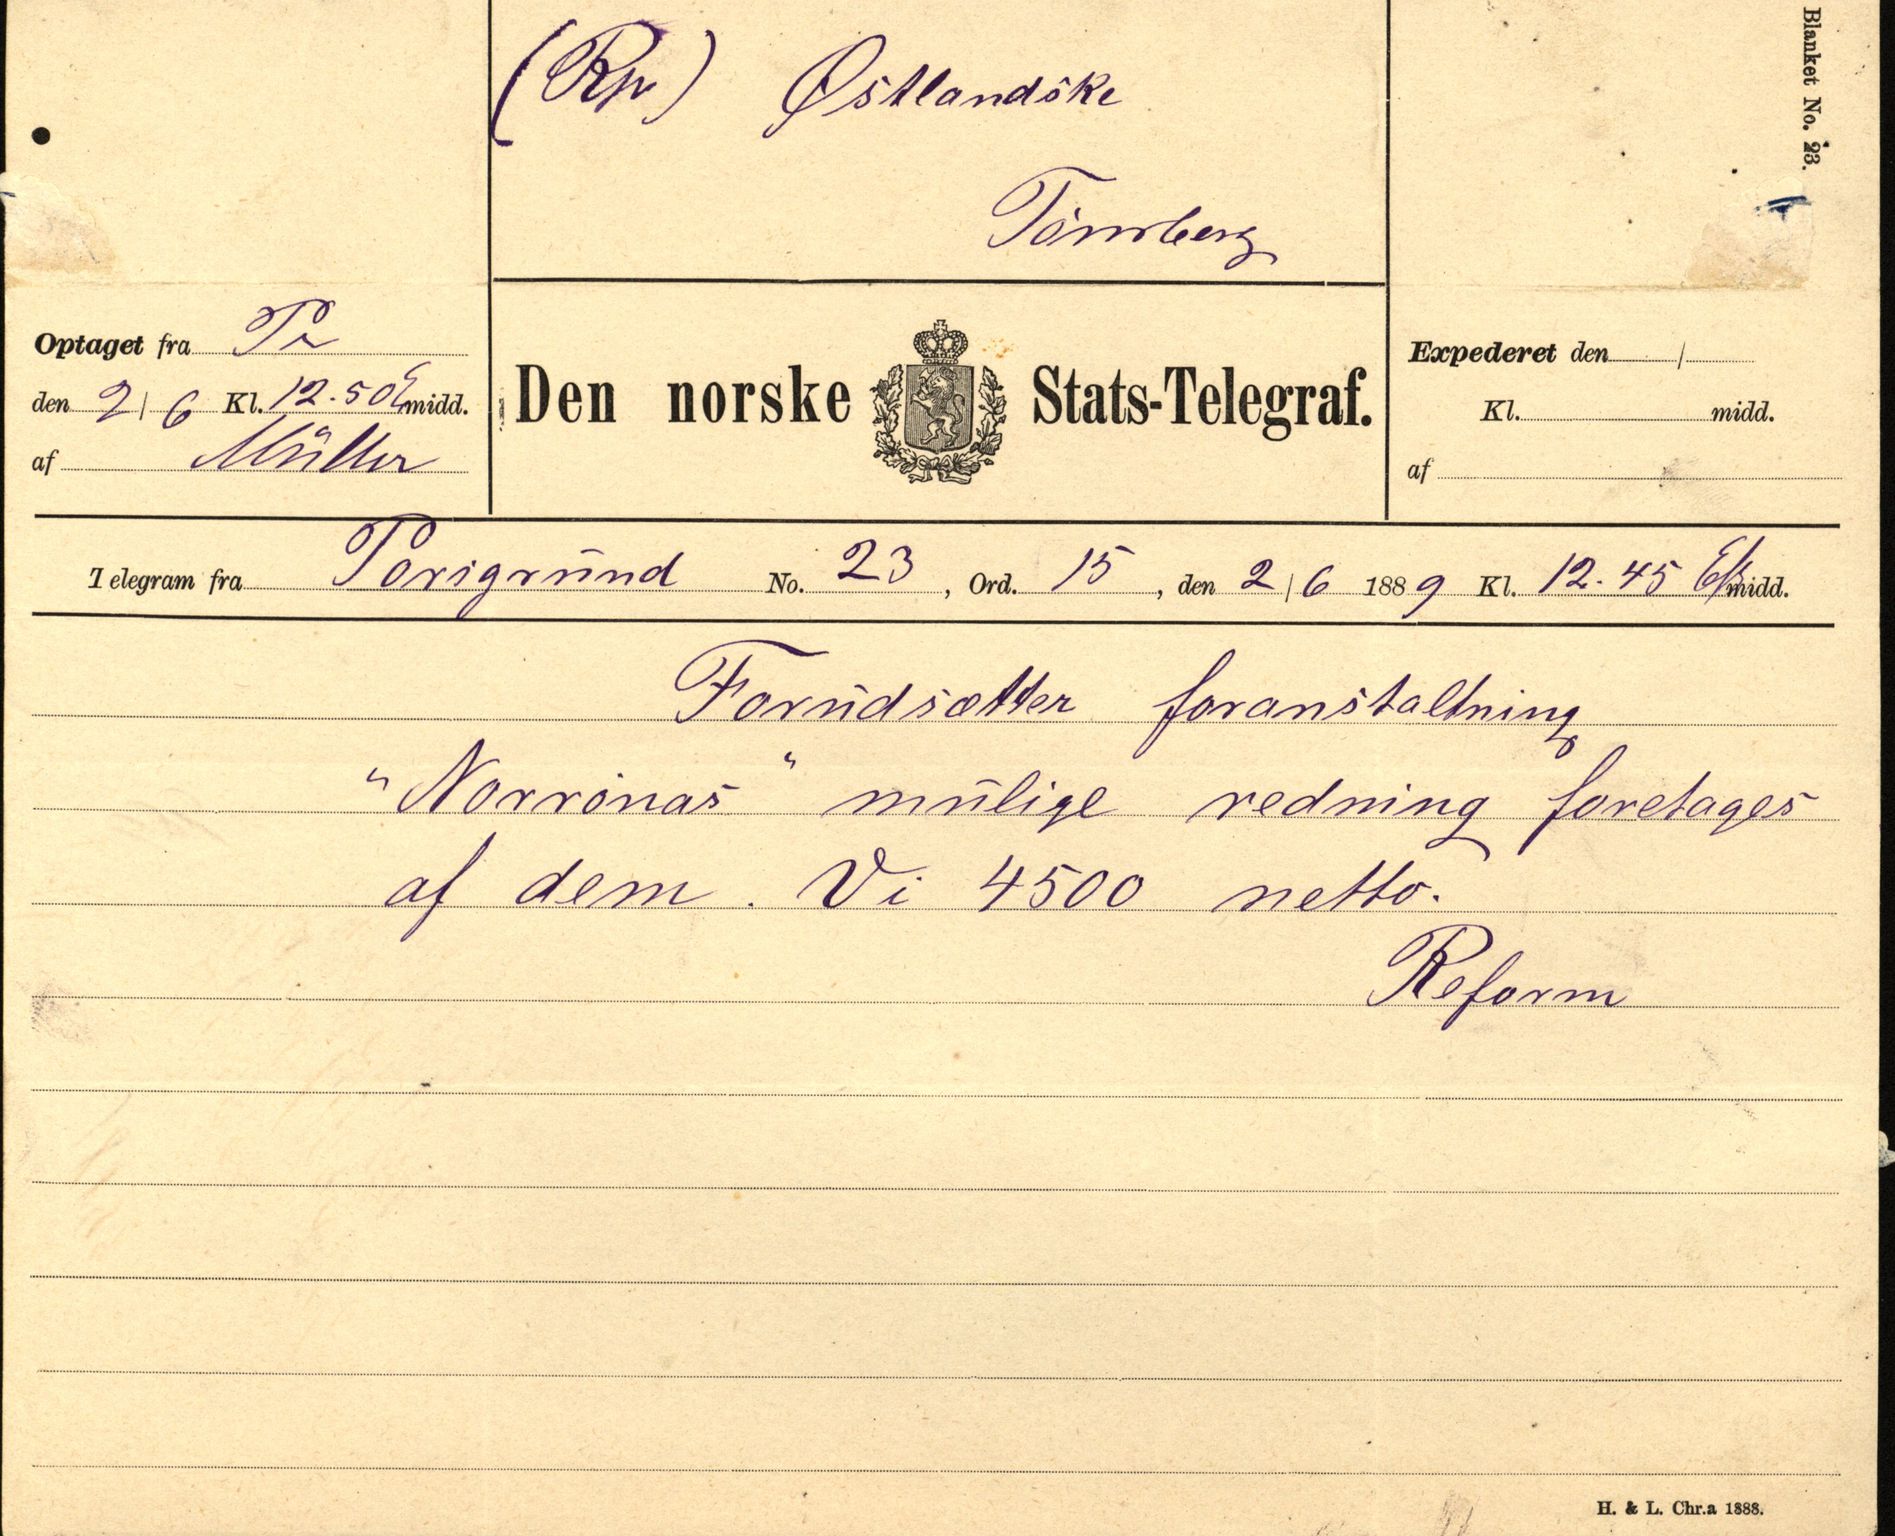 Blanket No. 23.
(Rp) Østlandske
Tönsberg
Optaget fra
den 2/6 Kl. 12.50 E midd.
af Müller
Den norske Stats-Telegraf.
Expederet den /
Kl. midd.
af
Telegram fra Porsgrund No. 23, Ord. 15, den 2/6 1889 Kl. 12.45 Ef midd.
Forudsætter foranstaltning
"Norrönas" mulige redning foretages
af dem. Vi 4500 netto.
Reform
H. & L. Chr.a 1888.